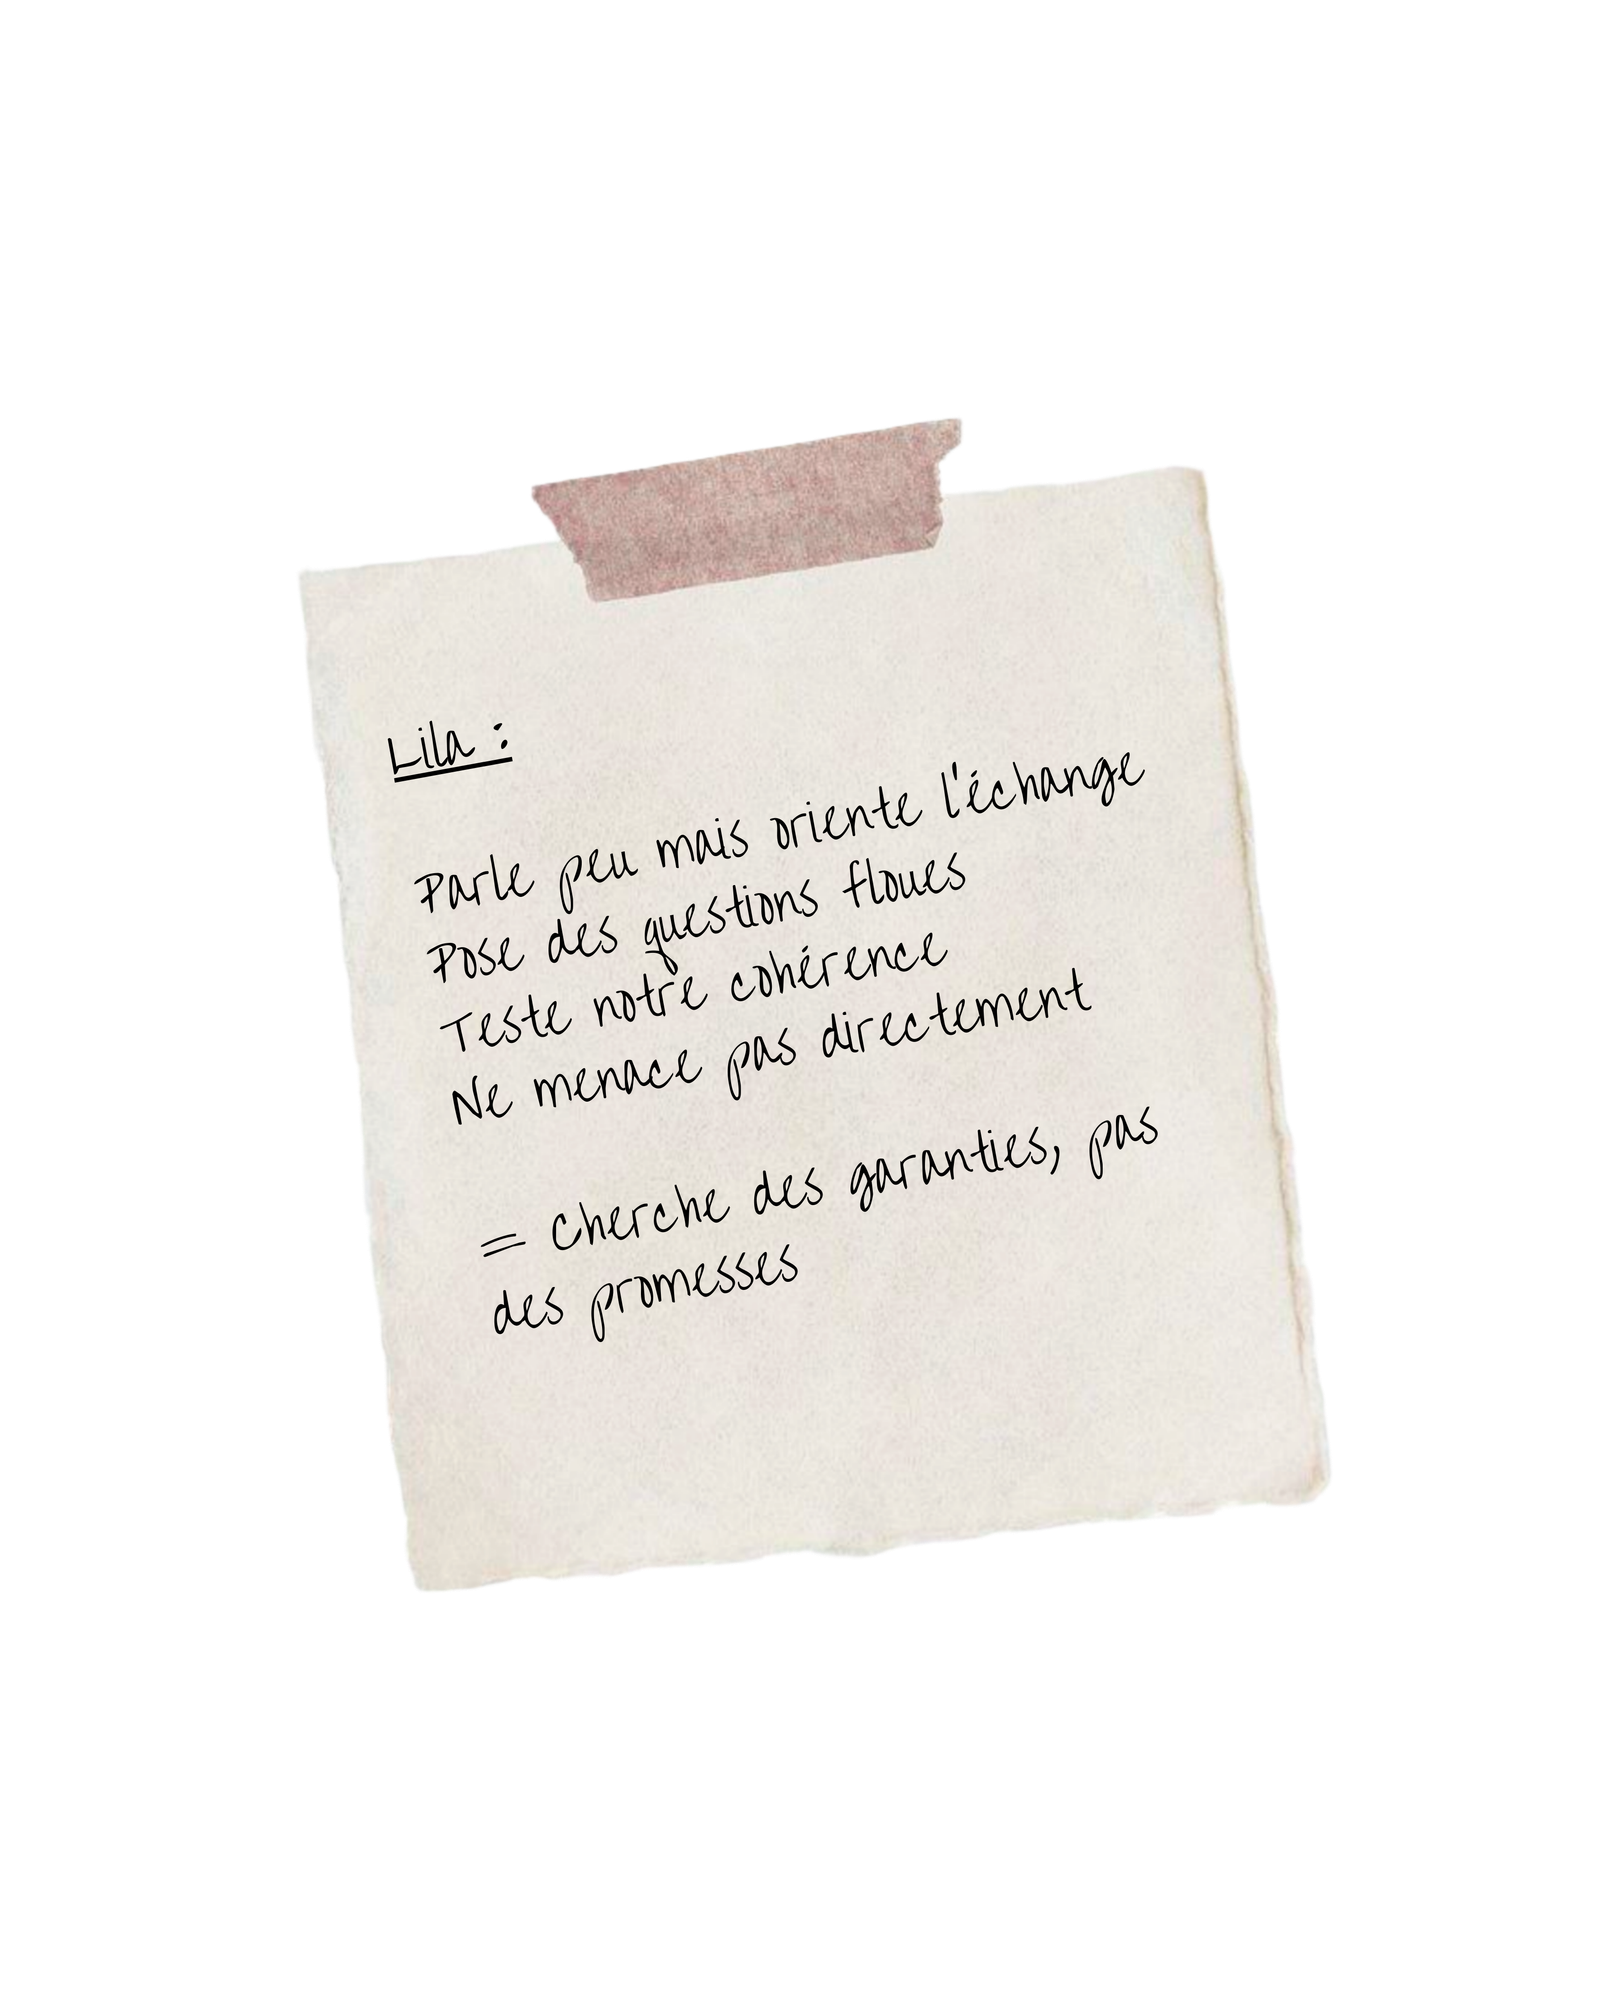 Lila :
Parle peu mais oriente l'échange
Pose des questions floues
Teste notre cohérence
Ne menace pas directement
= Cherche des garanties, pas
des promesses